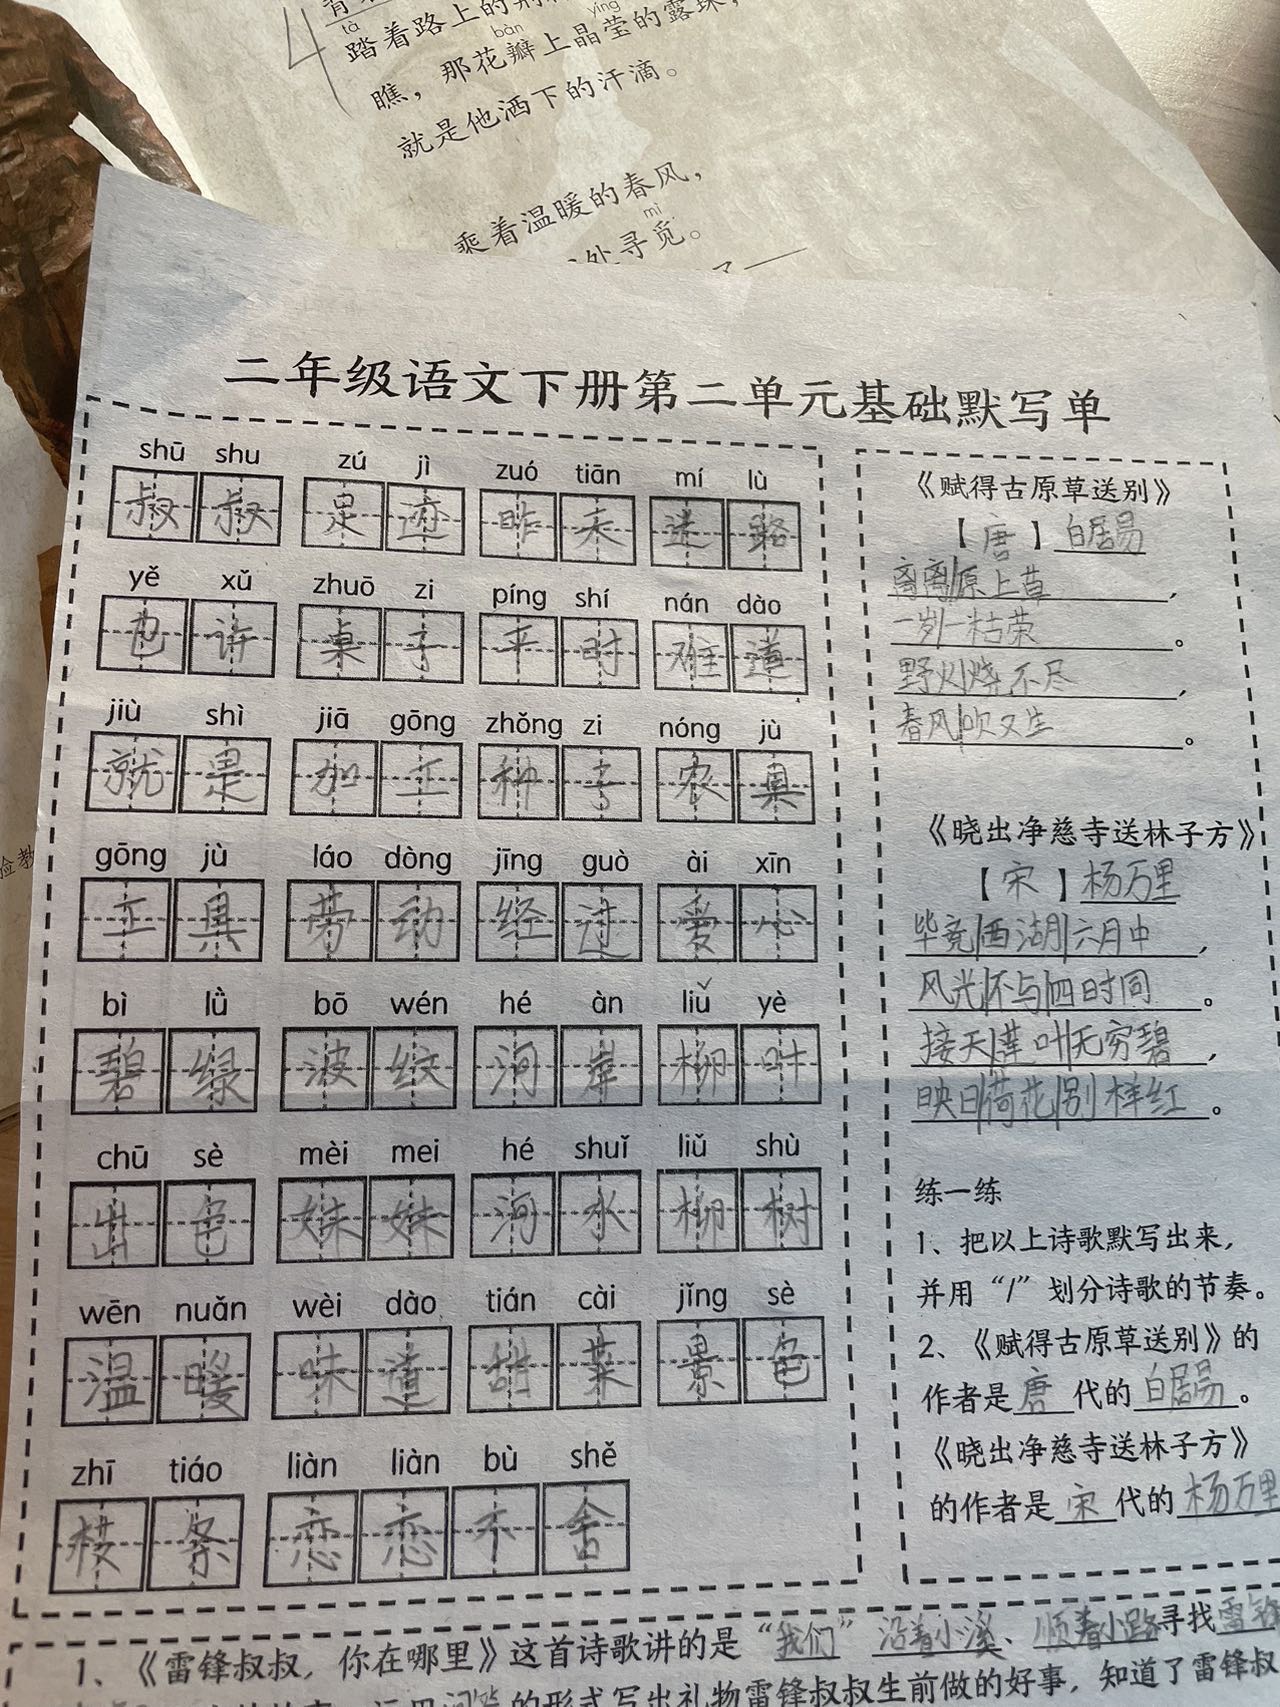 踏着路上的荆
瞧，那花瓣上晶莹的露珠，
就是他洒下的汗滴。
乘着温暖的春风，
处寻觅。
二年级语文下册第二单元基础默写单
shū shu zú jì zuó tiān mí lù
叔叔 足迹 昨天 迷路
yě xǔ zhuō zi píng shí nán dào
也许 桌子 平时 难道
jiù shì jiā gōng zhǒng zi nóng jù
就是 加工 种子 农具
gōng jù láo dòng jīng guò ài xīn
工具 劳动 经过 爱心
bì lǜ bō wén hé àn liǔ yè
碧绿 波纹 河岸 柳叶
chū sè mèi mei hé shuǐ liǔ shù
出色 妹妹 河水 柳树
wēn nuǎn wèi dào tián cài jǐng sè
温暖 味道 甜菜 景色
zhī tiáo liàn liàn bù shě
枝条 恋恋不舍
《赋得古原草送别》
【唐】白居易
离离/原上草，
一岁/一枯荣。
野火/烧不尽，
春风/吹又生。
《晓出净慈寺送林子方》
【宋】杨万里
毕竟/西湖/六月中，
风光/不与/四时同。
接天/莲叶/无穷碧，
映日/荷花/别样红。
练一练
1、把以上诗歌默写出来，
并用“/”划分诗歌的节奏。
2、《赋得古原草送别》的
作者是唐代的白居易。
《晓出净慈寺送林子方》
的作者是宋代的杨万里
1、《雷锋叔叔，你在哪里》这首诗歌讲的是“我们”沿着小溪、顺着小路寻找雷锋
的形式写出礼物雷锋叔叔生前做的好事，知道了雷锋叔